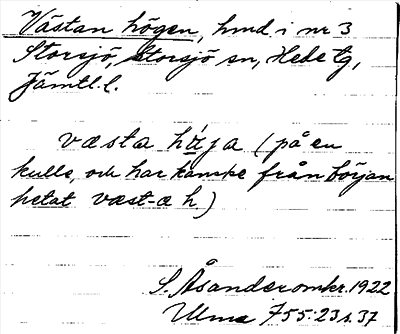 Västan högen, hmd i nr 3
Storsjö, Storsjö sn, Hede tg,
Jämtl. l.
væsta høja (på en
kulle, och har kanske från början
hetat væst-æ h)
S. Åsander omkr. 1922
Ulma 755:23 s. 37